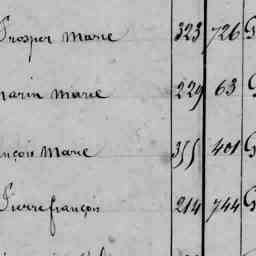 Prosper Marie 323 726 G
Marin Marie 229 63 G
ançois Marie 355 401 G
Pierre françois 214 744 G